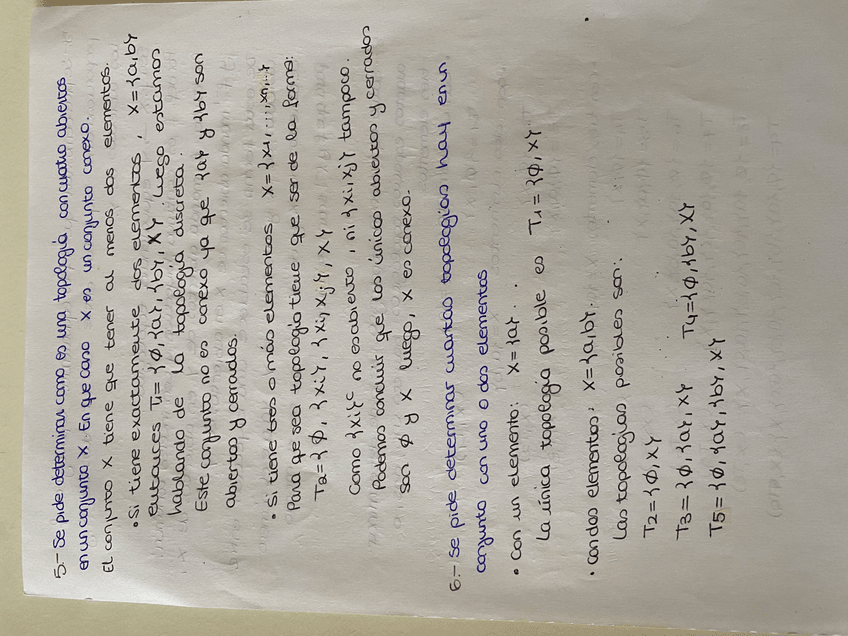 5.- Se pide determinar como es una topología, con cuatro abiertos
en un conjunto X. En que caso X es un conjunto conexo.
El conjunto X tiene que tener al menos dos elementos.
• Si tiene exactamente dos elementos, X={a,b}
entonces T1={ϕ,{a},{b},X}. Luego estamos
hablando de la topología discreta.
Este conjunto no es conexo ya que {a} y {b} son
abiertos y cerrados.
• Si tiene tres o más elementos X={x1,...,xn,...}
Para que sea topología tiene que ser de la forma:
T2={ϕ,{xi},{xi,xj},X}
Como {xi}ᶜ no es abierto, ni {xi,xj} tampoco.
Podemos concluir que los únicos abiertos y cerrados
son ϕ y X luego, X es conexo.
6.- Se pide determinar cuantas topologías hay en un
conjunto con uno o dos elementos
• Con un elemento: X={a}.
La única topología posible es T1={ϕ,X}
• Con dos elementos: X={a,b}.
Las topologías posibles son:
T2={ϕ,X}
T3={ϕ,{a},X} T4={ϕ,{b},X}
T5={ϕ,{a},{b},X}